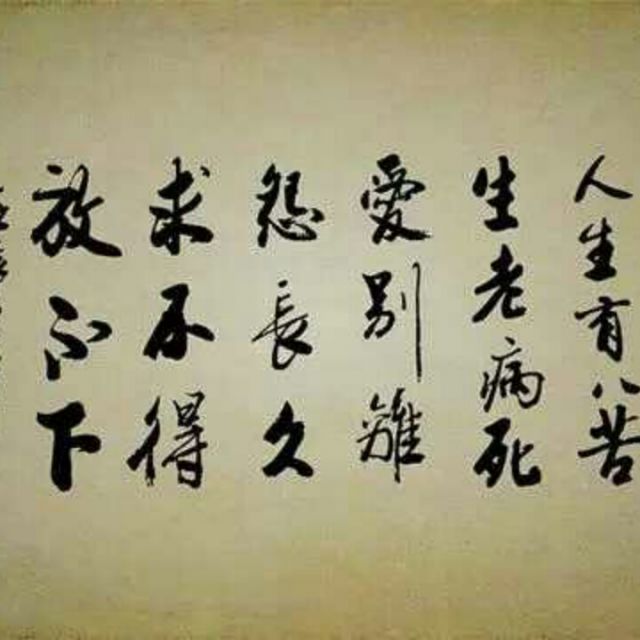 人生有八苦
生老病死
愛別離
怨長久
求不得
放不下